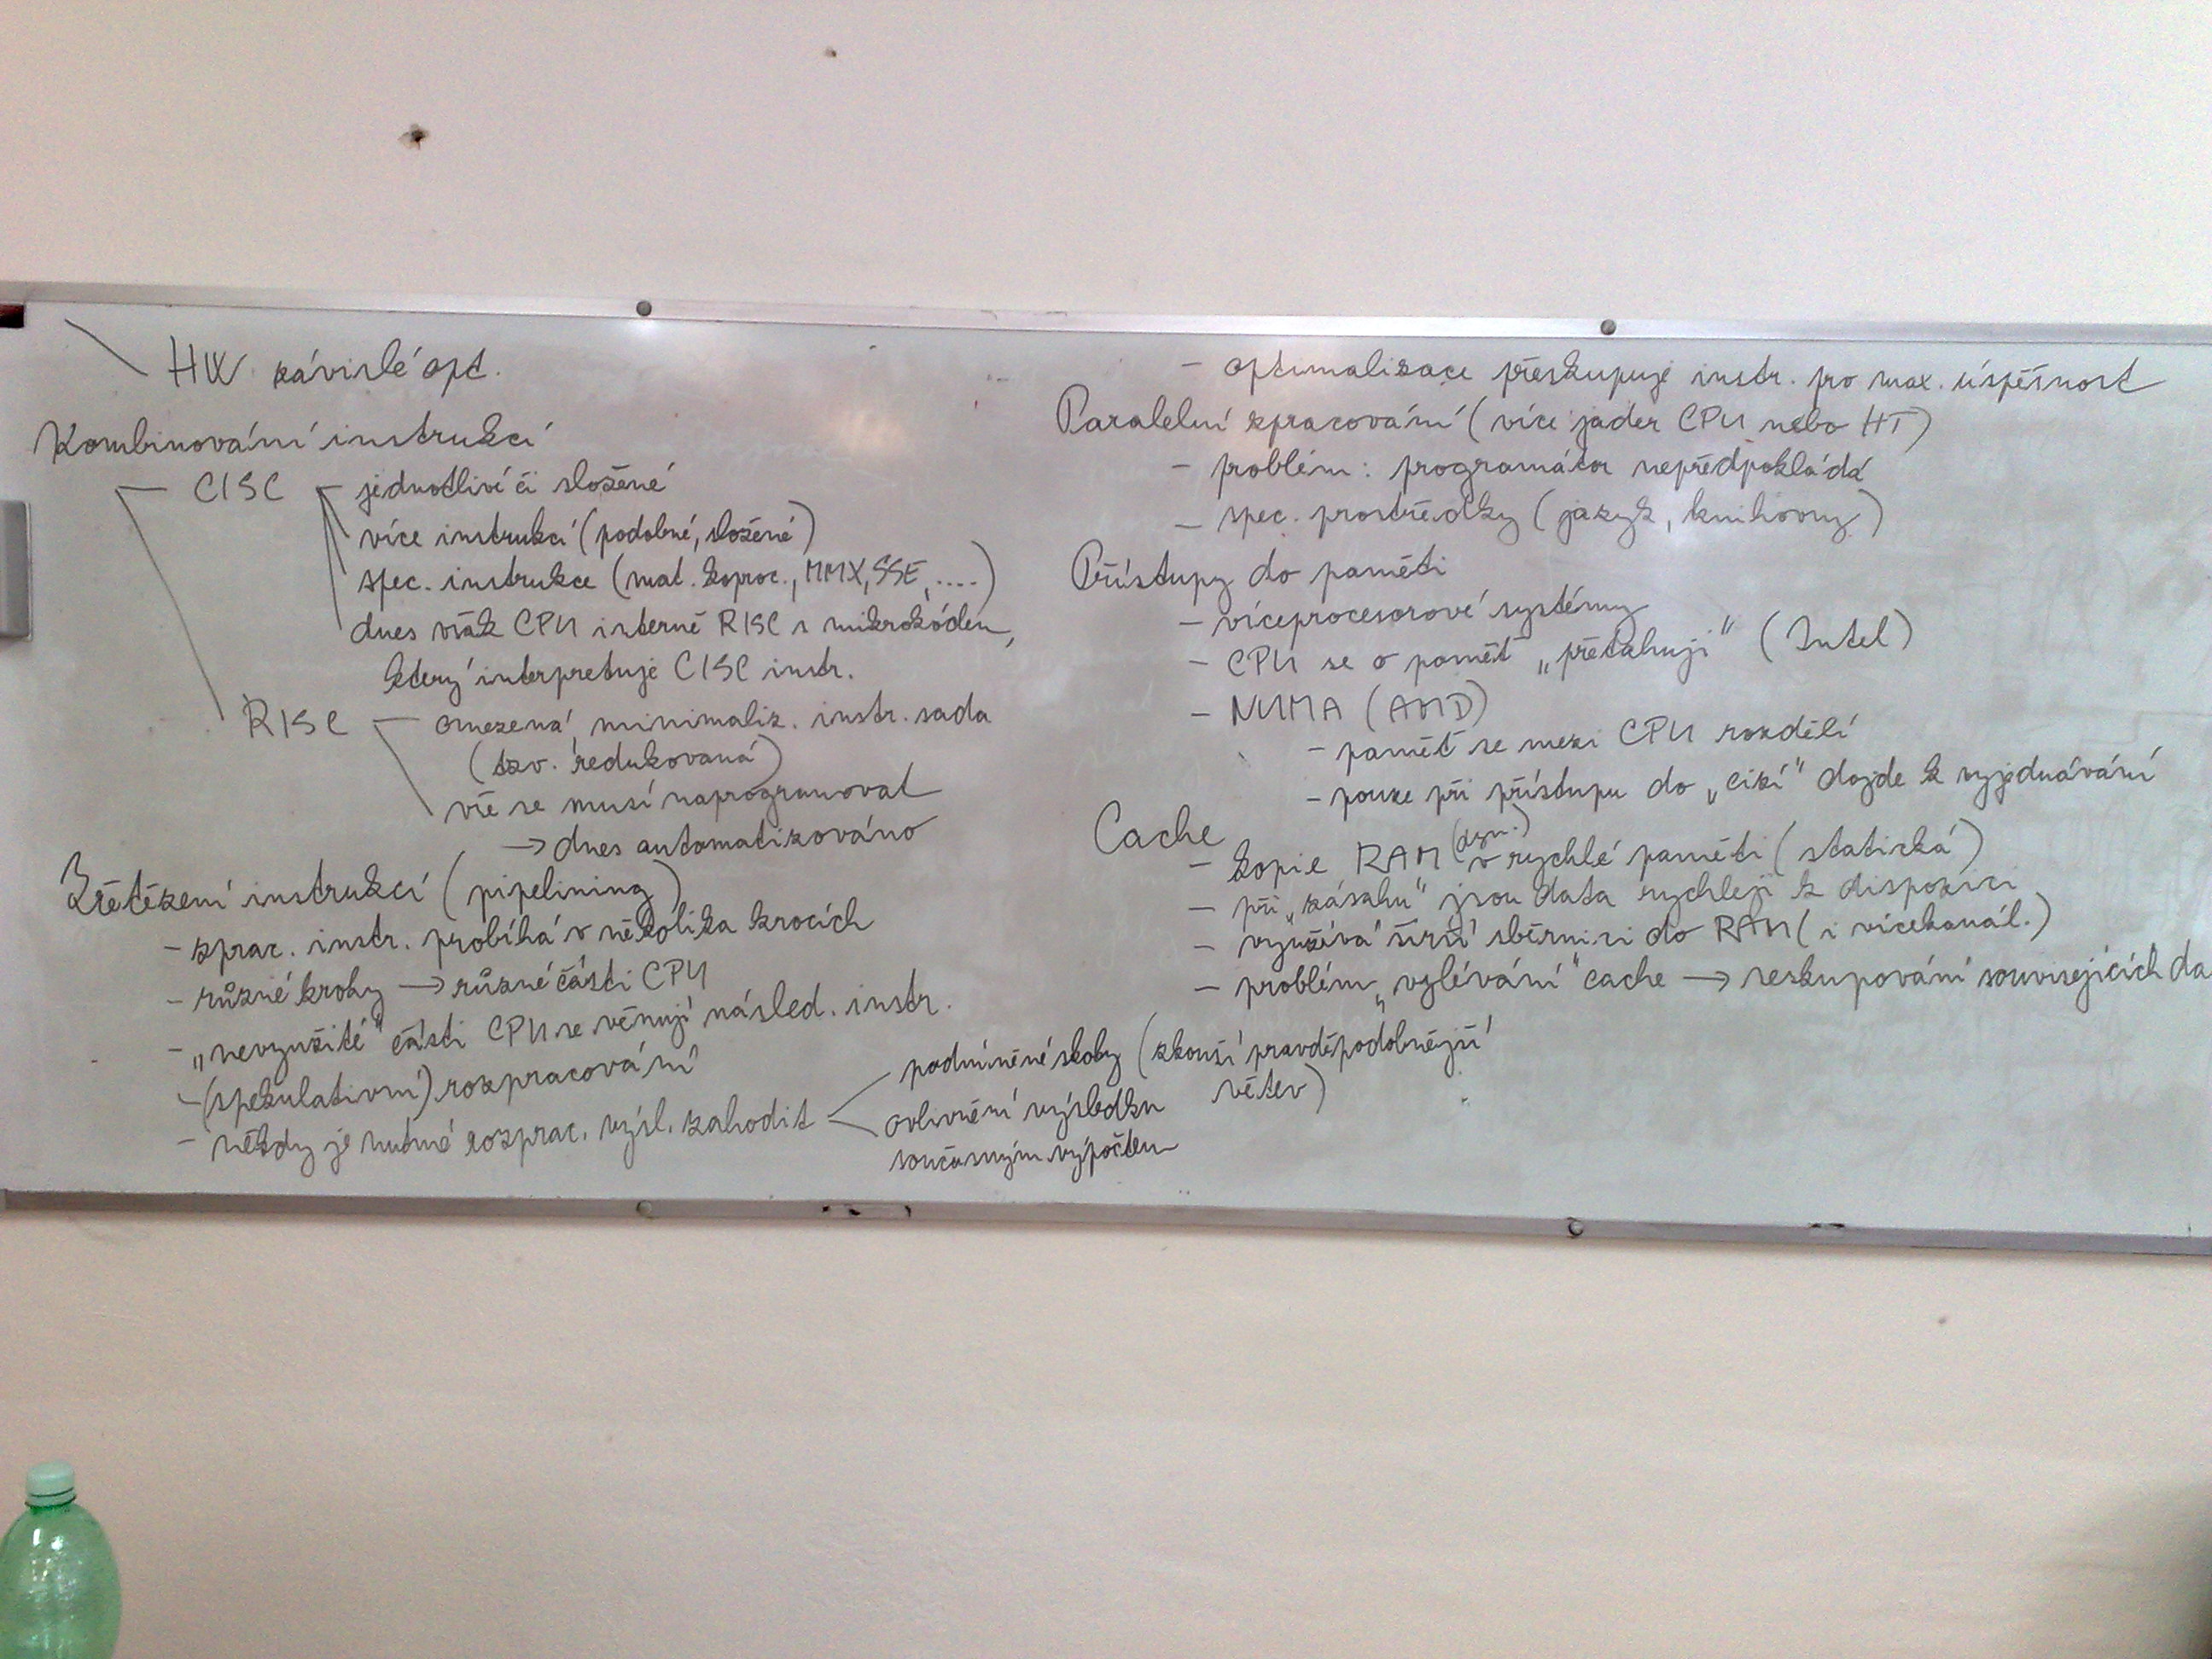 HW závislé opt.
Kombinování instrukcí
CISC
jednotlivé či složené
více instrukcí (podobné, složené)
spec. instrukce (mat. koproc., MMX, SSE, ....)
dnes však CPU interně RISC s mikrokódem,
který interpretuje CISC instr.
RISC
omezená, minimaliz. instr. sada
(tzv. redukovaná)
vše se musí naprogramovat
→ dnes automatizováno
Zřetězení instrukcí (pipelining)
- zprac. instr. probíhá v několika krocích
- různé kroky → různé části CPU
- „nevyužité“ části CPU se věnují násled. instr.
- (spekulativní) rozpracování
- někdy je nutné rozprac. výsl. zahodit
podmíněné skoky (zkouší pravděpodobnější
větev)
ovlivnění výsledku
současným výpočtem
- optimalizace přeskupuje instr. pro max. úspěšnost
Paralelní zpracování (více jader CPU nebo HT)
- problém: programátor nepředpokládá
- spec. prostředky (jazyk, knihovny)
Přístupy do paměti
- víceprocesorové systémy
- CPU se o paměť „přetahují“ (Intel)
- NUMA (AMD)
- paměť se mezi CPU rozdělí
- pouze při přístupu do „cizí“ dojde k vyjednávání
Cache
- kopie RAM (dyn.) v rychlé paměti (statická)
- při „zásahu“ jsou data rychleji k dispozici
- využívá širší sběrnici do RAM (i vícekanál.)
- problém „vylévání“ cache → seskupování souvisejících da